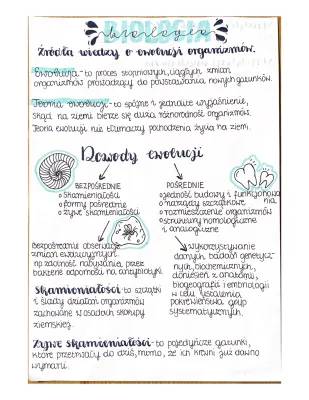 BIOLOGIA
biologia
Źródła wiedzy o ewolucji organizmów.
Ewolucja - to proces stopniowych, ciągłych zmian
organizmów prowadzący do powstawania nowych gatunków.
Teoria ewolucji - to spójne i jednolite wyjaśnienie,
skąd na ziemi bierze się duża różnorodność organizmów.
Teoria ewolucji nie tłumaczy pochodzenia życia na ziemi.
Dowody ewolucji
BEZPOŚREDNIE
skamieniałości
formy pośrednie
żywe skamieniałości
POŚREDNIE
jedność budowy i funkcjonowa
nia
narządy szczątkowe
rozmieszczenie organizmów
struktury homologiczne
i analogiczne
Bezpośrednie obserwacje
zmian ewolucyjnych
np. zdolność nabywania przez
bakterie odporności na antybiotyki.
wykorzystywanie
danych, badań genetycz-
nych, biochemicznych,
doniesień z anatomii,
biogeografii i embriologii
w celu ustalenia
pokrewieństwa grup
systematycznych.
Skamieniałości - to szczątki
i ślady działań organizmów
zachowane w osadach skorupy
ziemskiej.
Żywe skamieniałości - to pojedyncze gatunki,
które przetrwały do dziś, mimo, że ich krewni już dawno
wymarli.